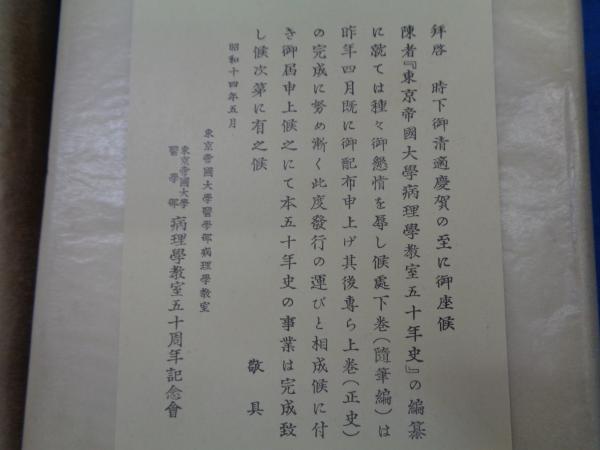 拜啓　時下御淸適慶賀の至に御座候
陳者『東京帝國大學病理學敎室五十年史』の編纂
に就ては種々御懇情を辱し候處下卷(隨筆編)は
昨年四月既に御配布申上げ其後專ら上卷(正史)
の完成に努め漸く此度發行の運びと相成候に付
き御屆申上候之にて本五十年史の事業は完成致
し候次第に有之候
敬具
昭和十四年五月
東京帝國大學醫學部病理學敎室
東京帝國大學醫學部病理學敎室五十周年記念會